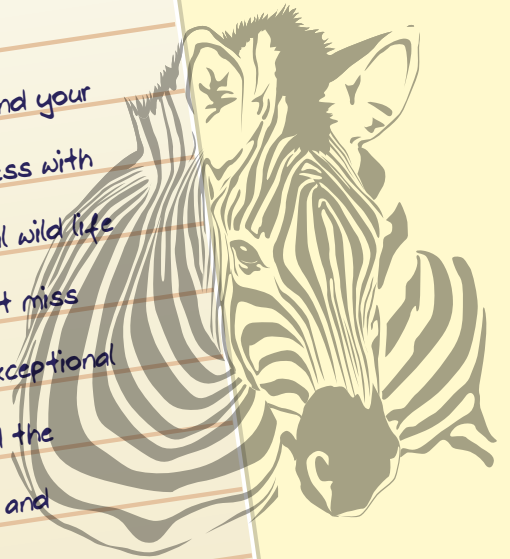 nd your
ss with
l wild life
t miss
xceptional
l the
and